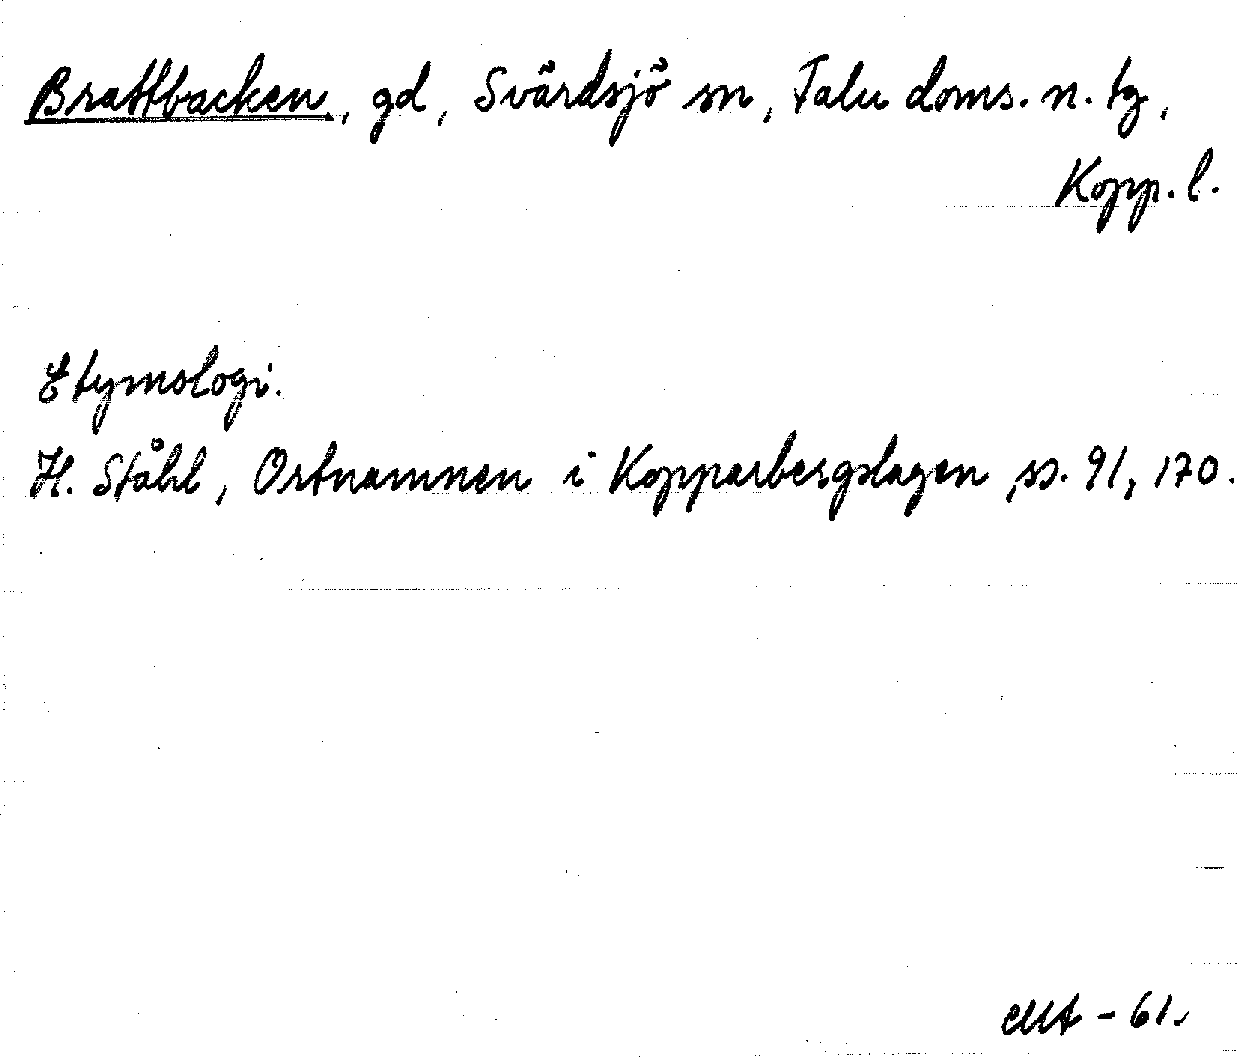 Brattbacken, gd, Svärdsjö sn, Falu doms. n. tg,
Kopp. l.
Etymologi.
H. Ståhl, Ortnamnen i Kopparbergslagen, ss. 91, 170.
-61.